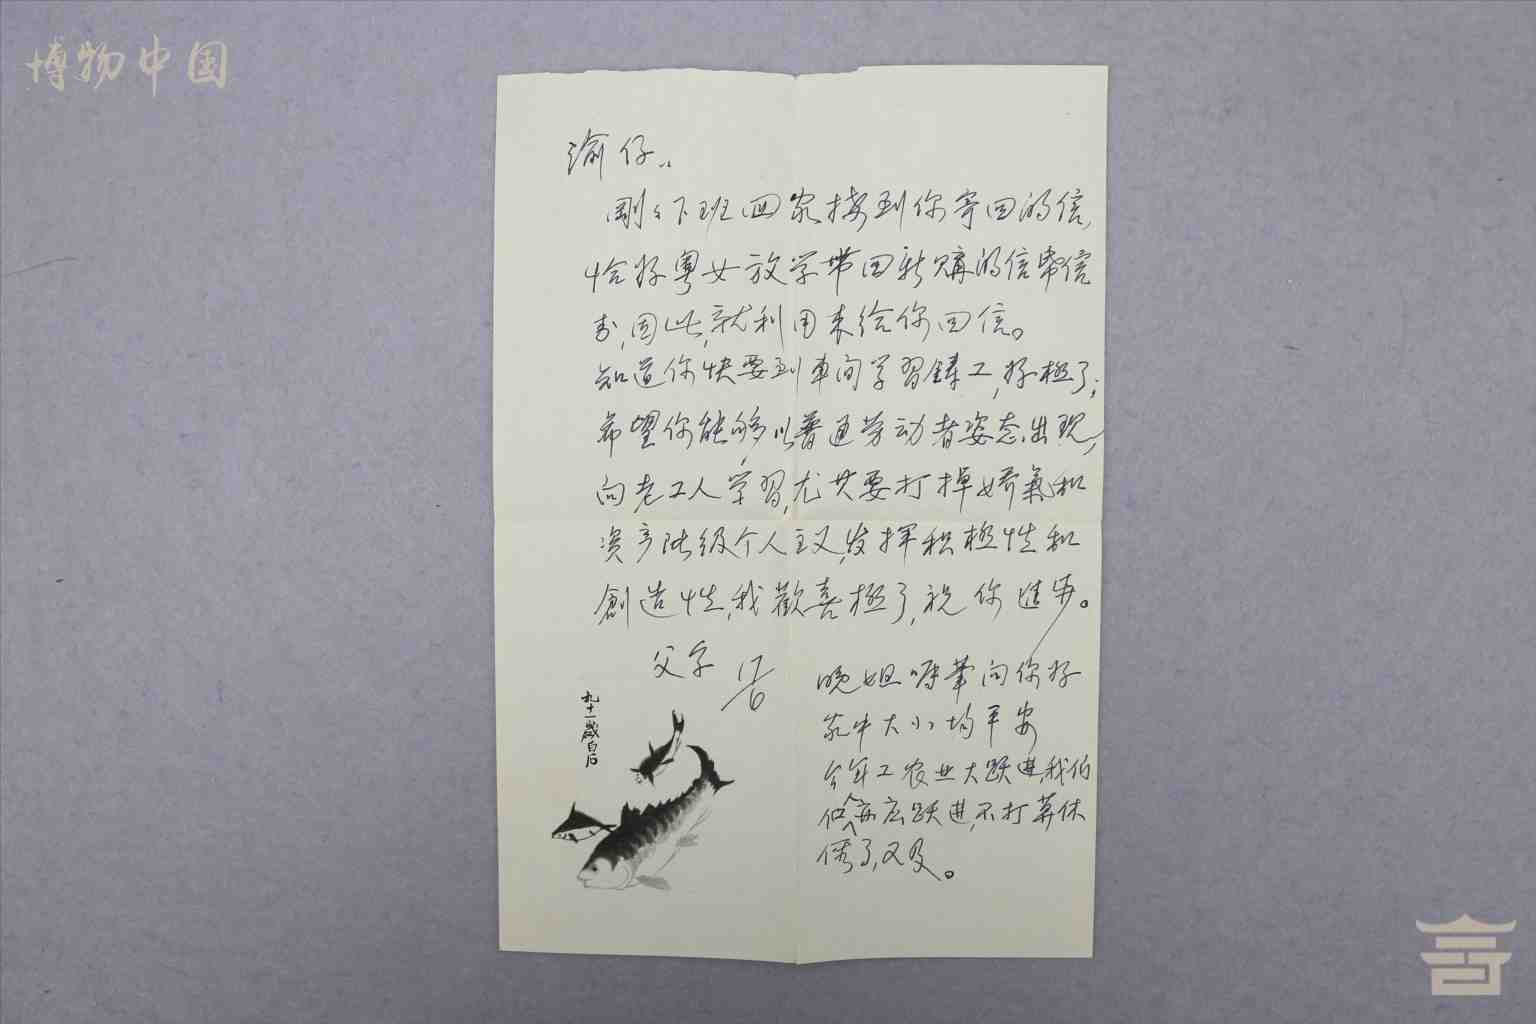 博物中国
渝仔：
剛々下班回家接到你寄回的信，
恰好粤女放学带回新購的信帋信
封，因此，就利用来给你回信。
知道你快要到車间学習鋳工，好極了；
希望你能够以普通劳动者姿态出现，
向老工人学習，尤其要打掉娇氣和
资产阶级个人主义，发挥积極性和
創造性，我歡喜極了，祝你進步。
父字 17/6
晚姐嘱筆向你好
家中大小均平安
今年工农业大跃進，我伯
但亦应跃進，不打算休
了，又及。
九十一歲白石